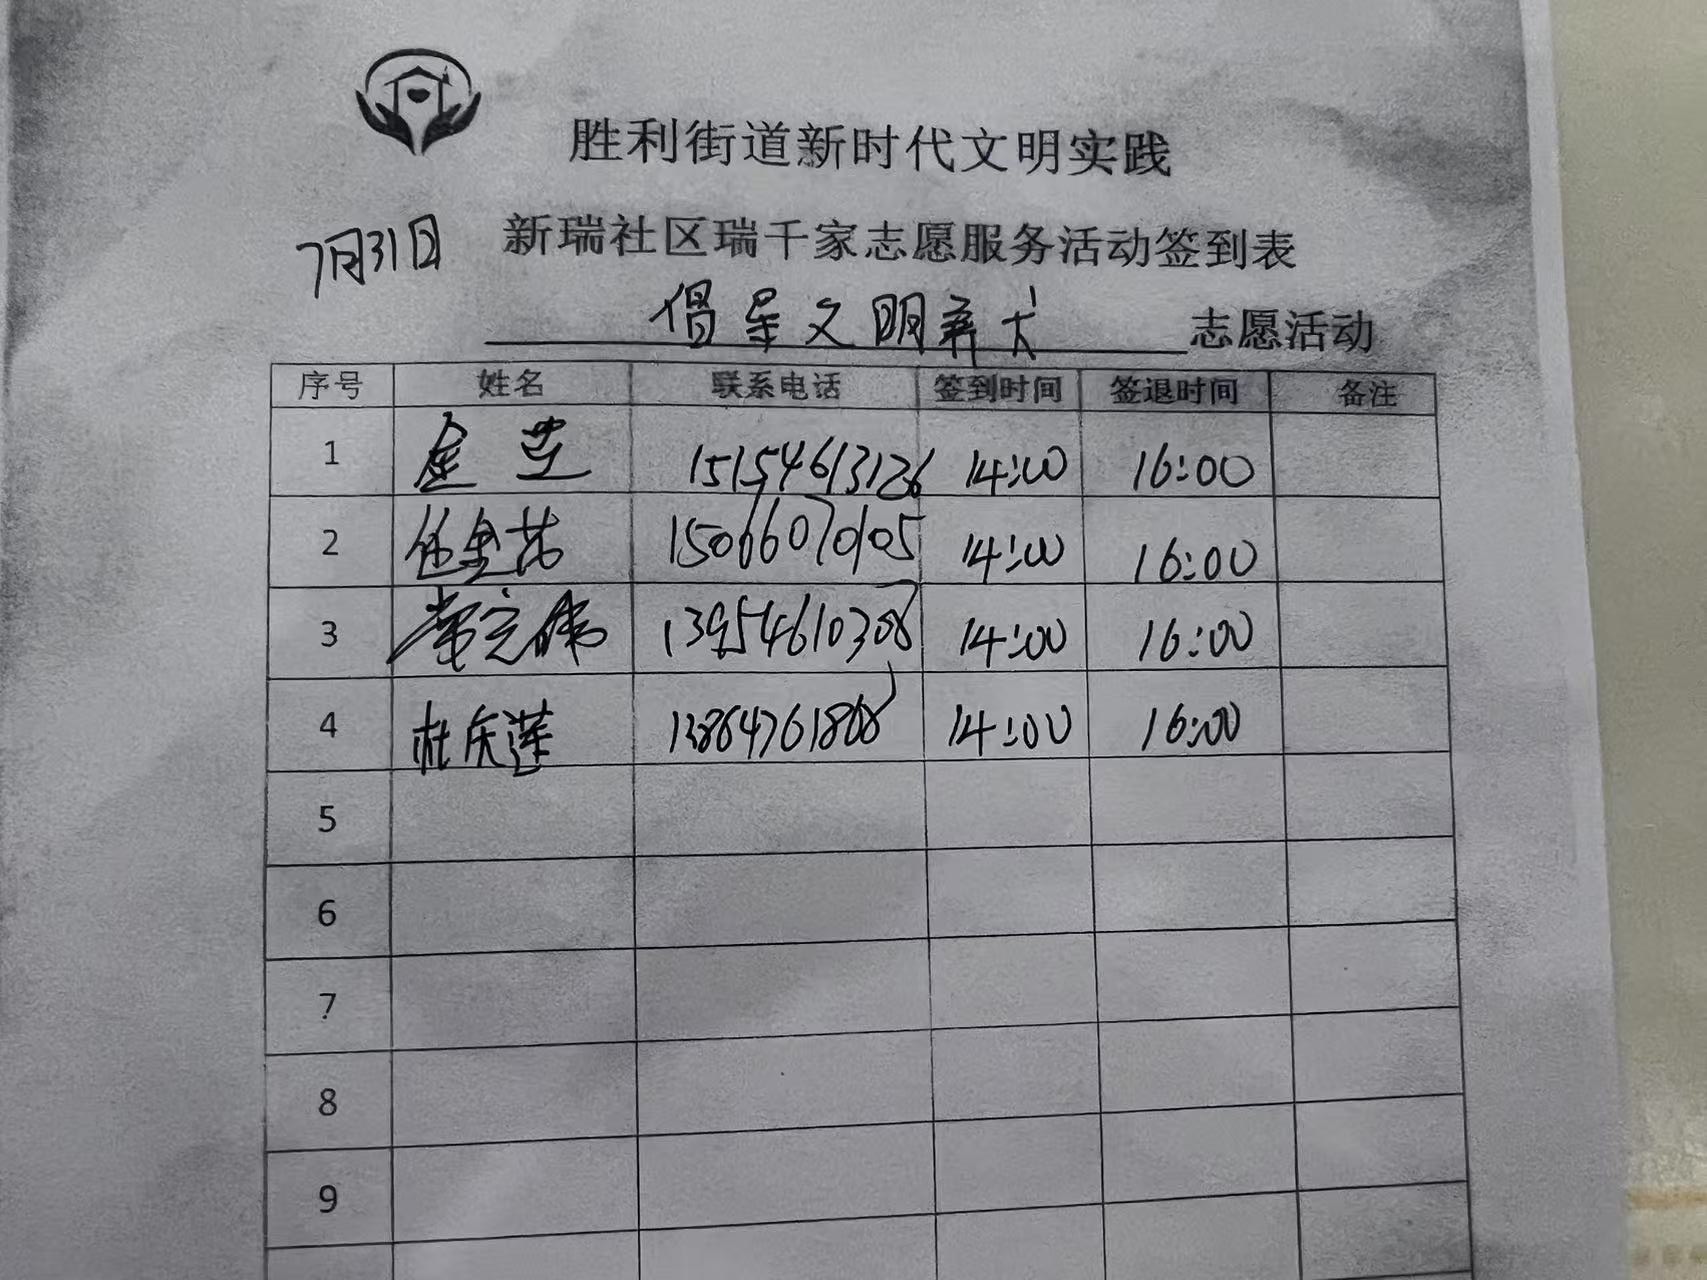 胜利街道新时代文明实践
7月31日 新瑞社区瑞千家志愿服务活动签到表
倡导文明养犬 志愿活动
序号 姓名 联系电话 签到时间 签退时间 备注
1 15154613126 14:00 16:00
2 15066070105 14:00 16:00
3 常立伟 13954610308 14:00 16:00
4 杜庆莲 13864761868 14:00 16:00
5
6
7
8
9